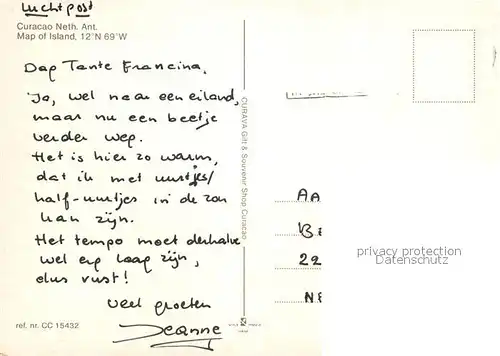 Luchtpost
Curacao Neth. Ant.
Map of Island, 12°N 69°W
Dag Tante Francina,
Ja, wel naar een eiland,
maar nu een beetje
verder weg.
Het is hier zo warm,
dat ik met uurtjes/
half-uurtjes in de zon
kan zijn.
Het tempo moet derhalve
wel erg laag zijn,
dus rust!
veel groeten
Jeanne
ref. nr. CC 15432
CURAVA Gift & Souvenir Shop Curacao
AA
BE
22
NE
privacy protection
Datenschutz